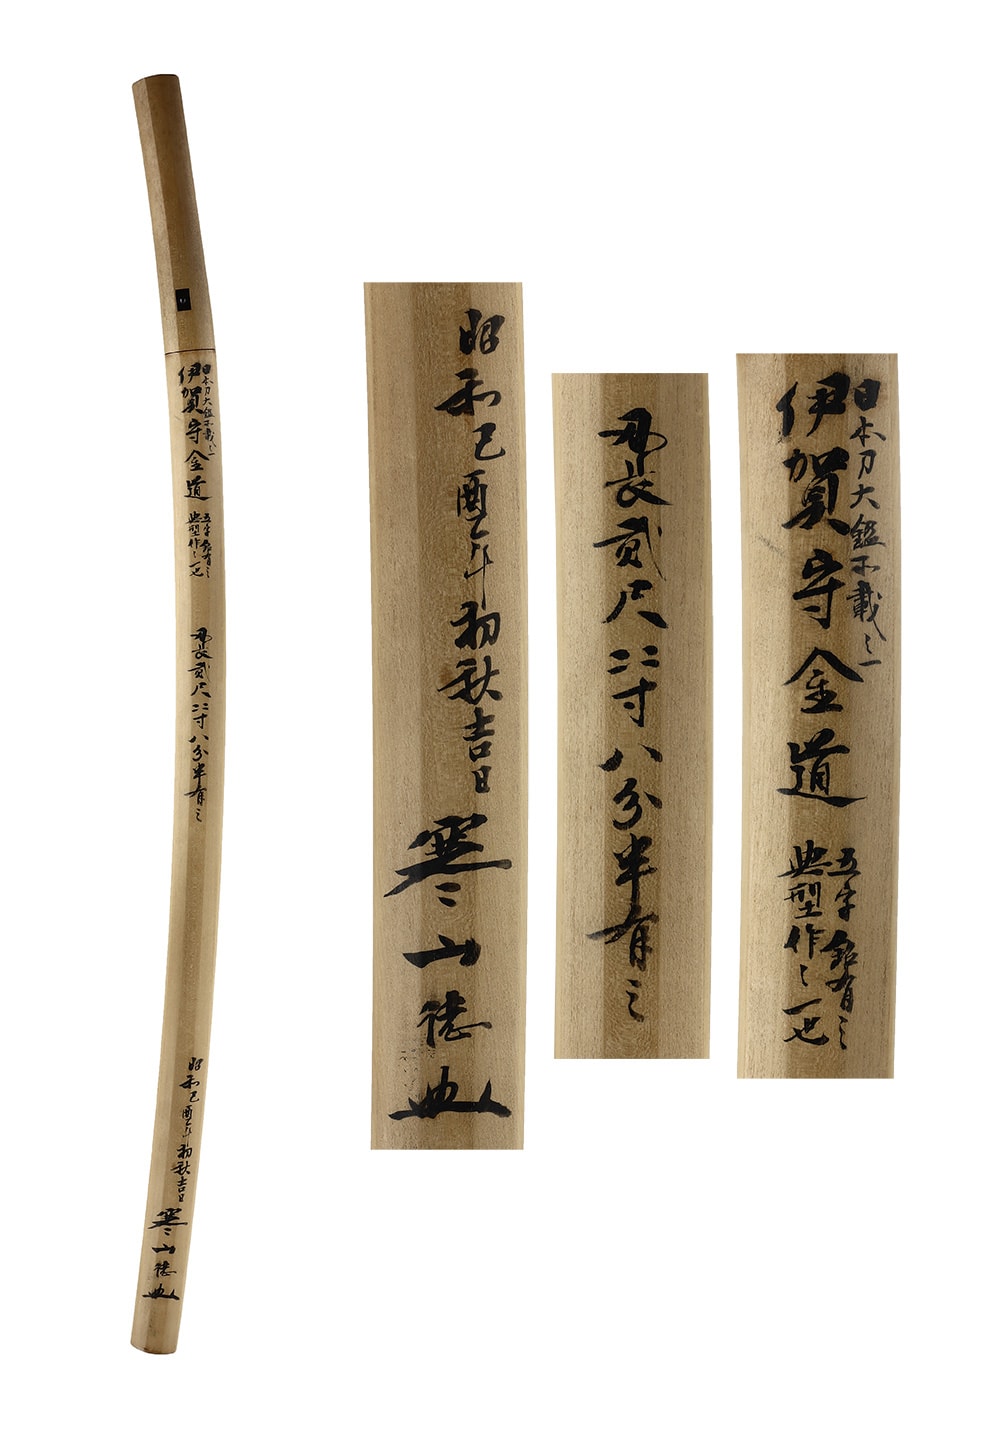 日本刀大鑑所載之一
伊賀守金道
五字銘有之
典型作之一也
刃長貳尺二寸八分半有之
昭和己酉年初秋吉日
寒山誌
日本刀大鑑所載之一
伊賀守金道
五字銘有之
典型作之一也
刃長貳尺二寸八分半有之
昭和己酉年初秋吉日
寒山誌